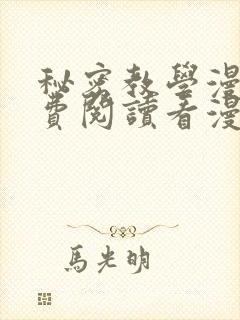 秘密教學漫
費閱讀看漫
馬光明